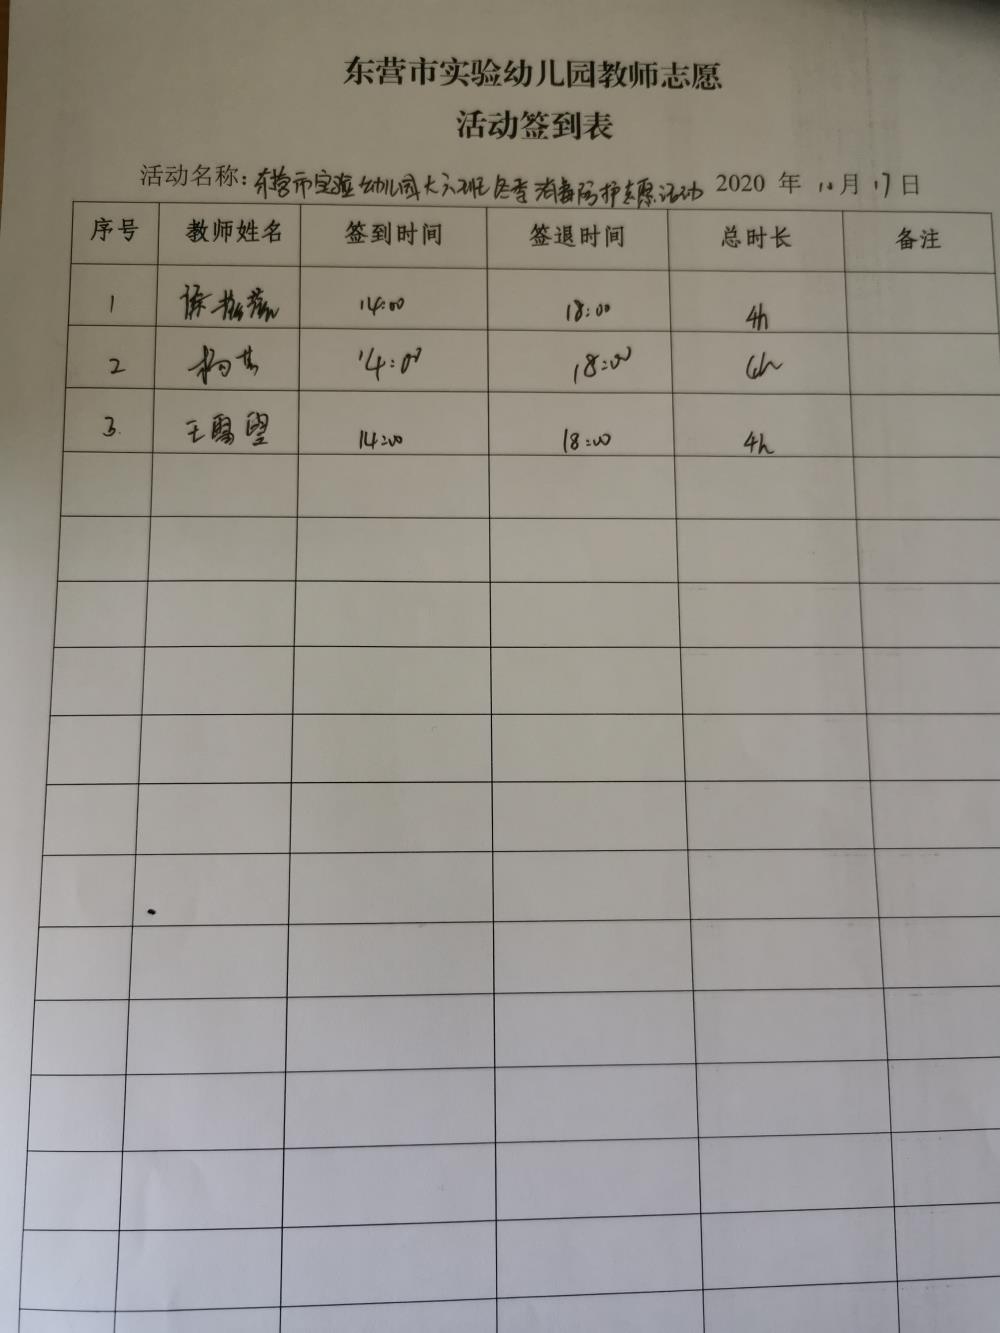 东营市实验幼儿园教师志愿
活动签到表
活动名称：东营市实验幼儿园大六班冬季消毒防护志愿活动 2020 年 10月 17日
序号 教师姓名 签到时间 签退时间 总时长 备注
1 徐 14:00 18:00 4h
2 杨 14:00 18:00 4h
3. 王 望 14:00 18:00 4h